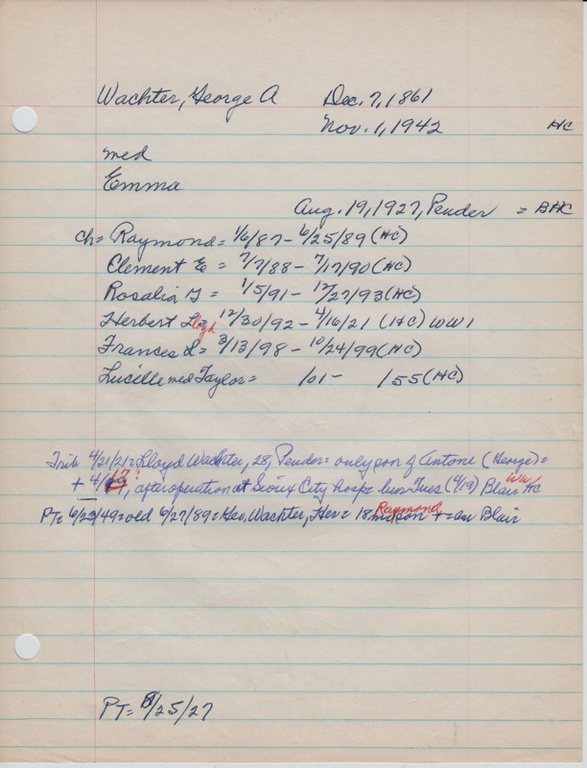 Wachter, George A Dec. 7, 1861
Nov. 1, 1942 HC
med
Emma
Aug. 19, 1927, Pender = BHC
ch = Raymond = 1/6/87 - 6/25/89 (HC)
Clement E = 7/7/88 - 7/17/90 (HC)
Rosalia G = 1/5/91 - 12/27/93 (HC)
Herbert L = 12/30/92 - 4/16/21 (HC) WW1
loyd
Frances L = 3/13/98 - 10/24/99 (HC)
Lucille med Taylor = /01 - /55 (HC)
Trib 4/21/21 = Lloyd Wachter, 28, Pender = only son of Antone (George) =
+ 4/17?, after operation at Sioux City hosp = bur Tues (4/19) Blair HC
WW1
Raymond
PT = 6/23/49 = old 6/27/89 = Geo, Wachter, Her = 18 mo son + = bur Blair
PT = 8/25/27